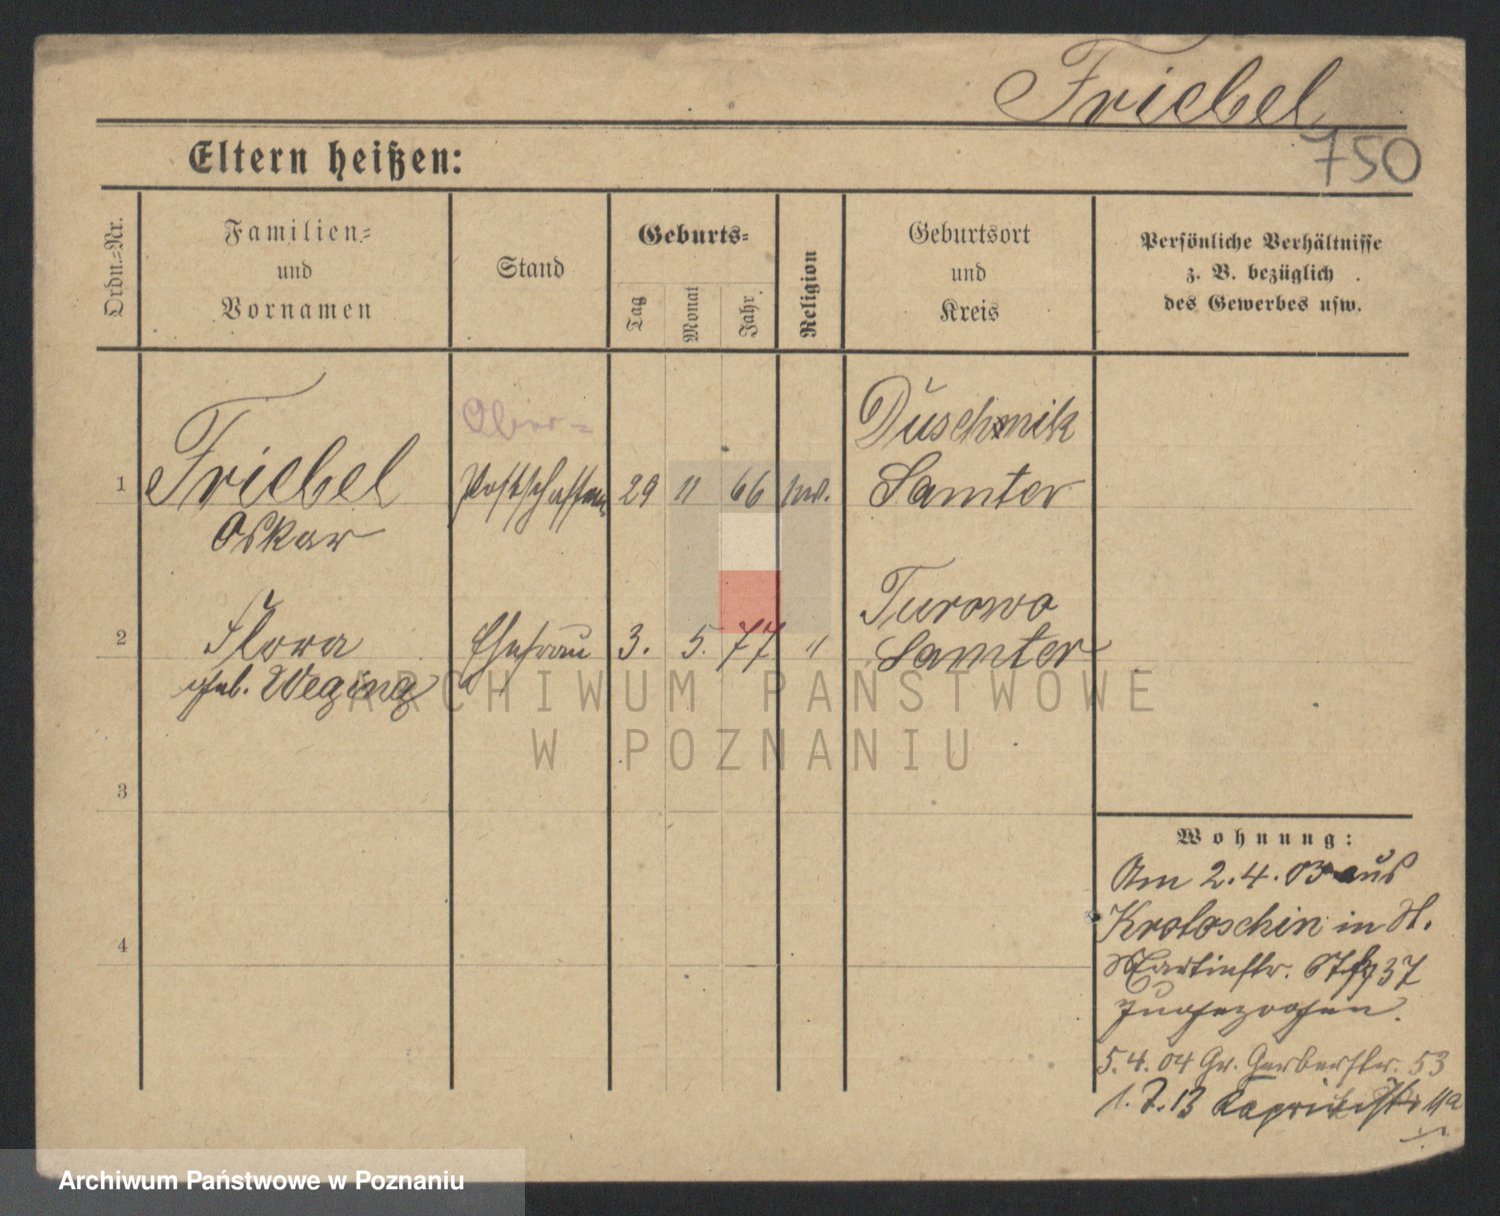 Friebel
750
Eltern heißen:
Ordn.-Nr.
Familien-
und
Vornamen
Stand
Geburts-
Tag
Monat
Jahr
Religion
Geburtsort
und
Kreis
Persönliche Verhältnisse
z. B. bezüglich
des Gewerbes usw.
Ober-
1 Friebel Postschaffner 29 11 66 Duschnik
Oskar Samter
2 Flora Ehefrau 3. 5. 77 " Turowo
geb. Weging Samter
3
4
Wohnung:
Am 2.4.03 aus
Krotoschin in St.
Martinstr. 37
zugezogen.
5.4.04 Gr. Gerberstr. 53
1.7.13 11a
ARCHIWUM PAŃSTWOWE
W POZNANIU
Archiwum Państwowe w Poznaniu